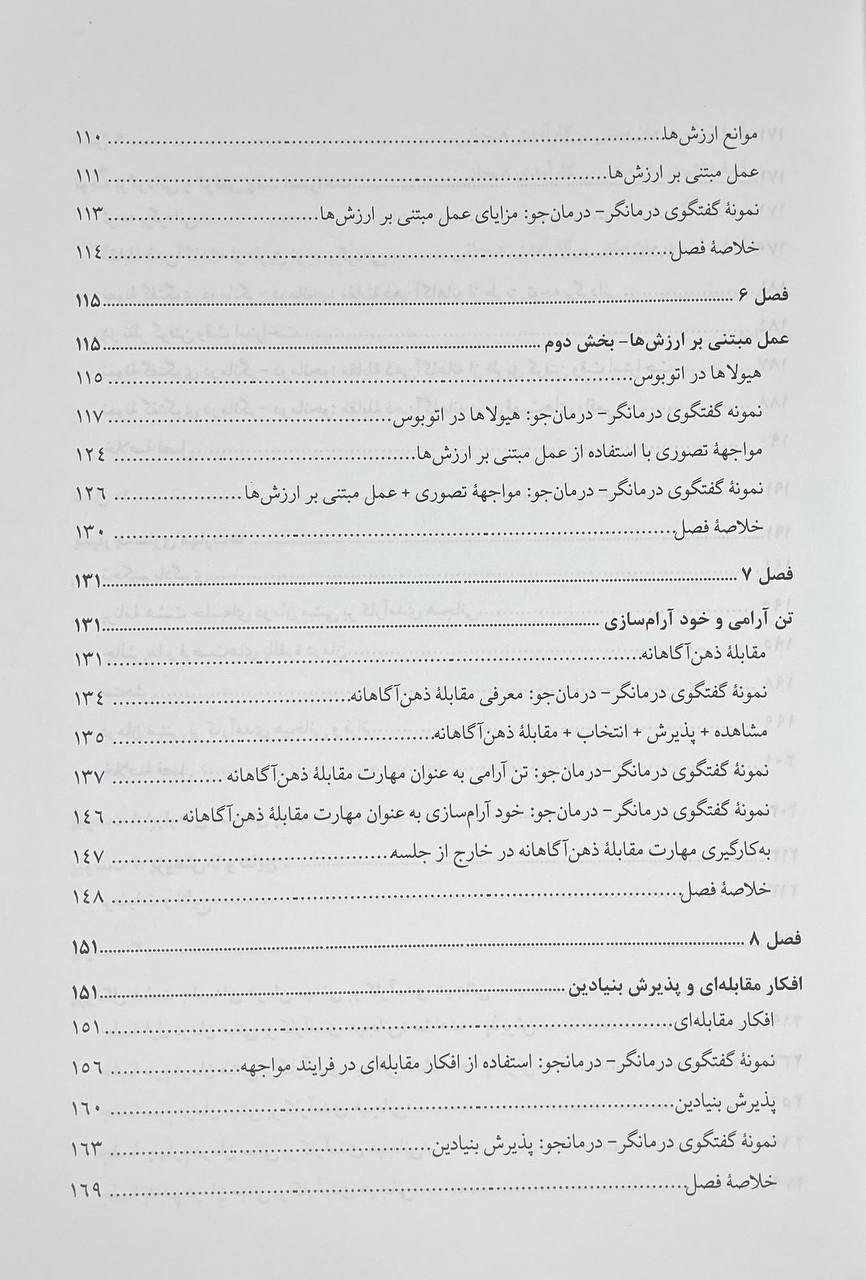 موانع ارزش‌ها ........ ۱۱۰
عمل مبتنی بر ارزش‌ها ........ ۱۱۱
نمونهٔ گفتگوی درمانگر- درمان‌جو: مزایای عمل مبتنی بر ارزش‌ها ........ ۱۱۳
خلاصهٔ فصل ........ ۱۱٤
فصل ۶ ........ ۱۱۵
عمل مبتنی بر ارزش‌ها- بخش دوم ........ ۱۱۵
هیولاها در اتوبوس ........ ۱۱٥
نمونه گفتگوی درمانگر- درمان‌جو: هیولاها در اتوبوس ........ ۱۱۷
مواجههٔ تصوری با استفاده از عمل مبتنی بر ارزش‌ها ........ ۱۲٤
نمونهٔ گفتگوی درمانگر- درمان‌جو: مواجههٔ تصوری + عمل مبتنی بر ارزش‌ها ........ ۱۲٦
خلاصهٔ فصل ........ ۱۳۰
فصل ۷ ........ ۱۳۱
تن آرامی و خود آرام‌سازی ........ ۱۳۱
مقابلهٔ ذهن‌آگاهانه ........ ۱۳۱
نمونهٔ گفتگوی درمانگر- درمان‌جو: معرفی مقابلهٔ ذهن‌آگاهانه ........ ۱۳٤
مشاهده + پذیرش + انتخاب + مقابلهٔ ذهن‌آگاهانه ........ ۱۳٥
نمونهٔ گفتگوی درمانگر-درمان‌جو: تن آرامی به عنوان مهارت مقابلهٔ ذهن‌آگاهانه ........ ۱۳۷
نمونهٔ گفتگوی درمانگر- درمان‌جو: خود آرام‌سازی به عنوان مهارت مقابلهٔ ذهن‌آگاهانه ........ ۱٤٦
به‌کارگیری مهارت مقابلهٔ ذهن‌آگاهانه در خارج از جلسه ........ ۱٤۷
خلاصهٔ فصل ........ ۱٤۸
فصل ۸ ........ ۱۵۱
افکار مقابله‌ای و پذیرش بنیادین ........ ۱۵۱
افکار مقابله‌ای ........ ۱٥۱
نمونهٔ گفتگوی درمانگر- درمانجو: استفاده از افکار مقابله‌ای در فرایند مواجهه ........ ۱٥٦
پذیرش بنیادین ........ ۱٦۰
نمونهٔ گفتگوی درمانگر- درمانجو: پذیرش بنیادین ........ ۱٦۳
خلاصهٔ فصل ........ ۱٦۹